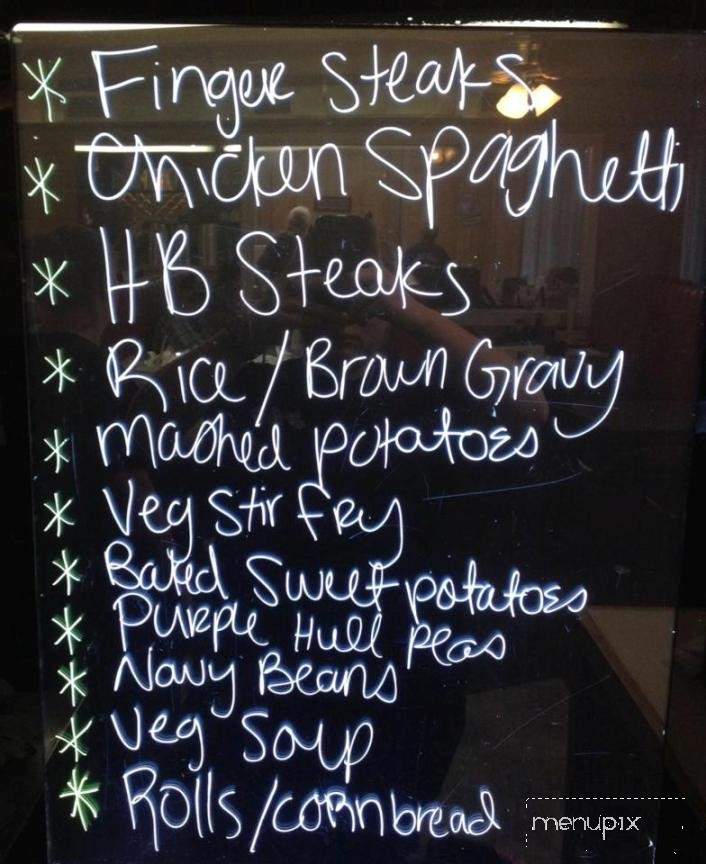 * Finger Steaks
* Chicken Spaghetti
* HB Steaks
* Rice / Brown Gravy
* Mashed potatoes
* Veg Stir fry
* Baked Sweet potatoes
* Purple Hull peas
* Navy Beans
* Veg Soup
* Rolls/cornbread
menupix